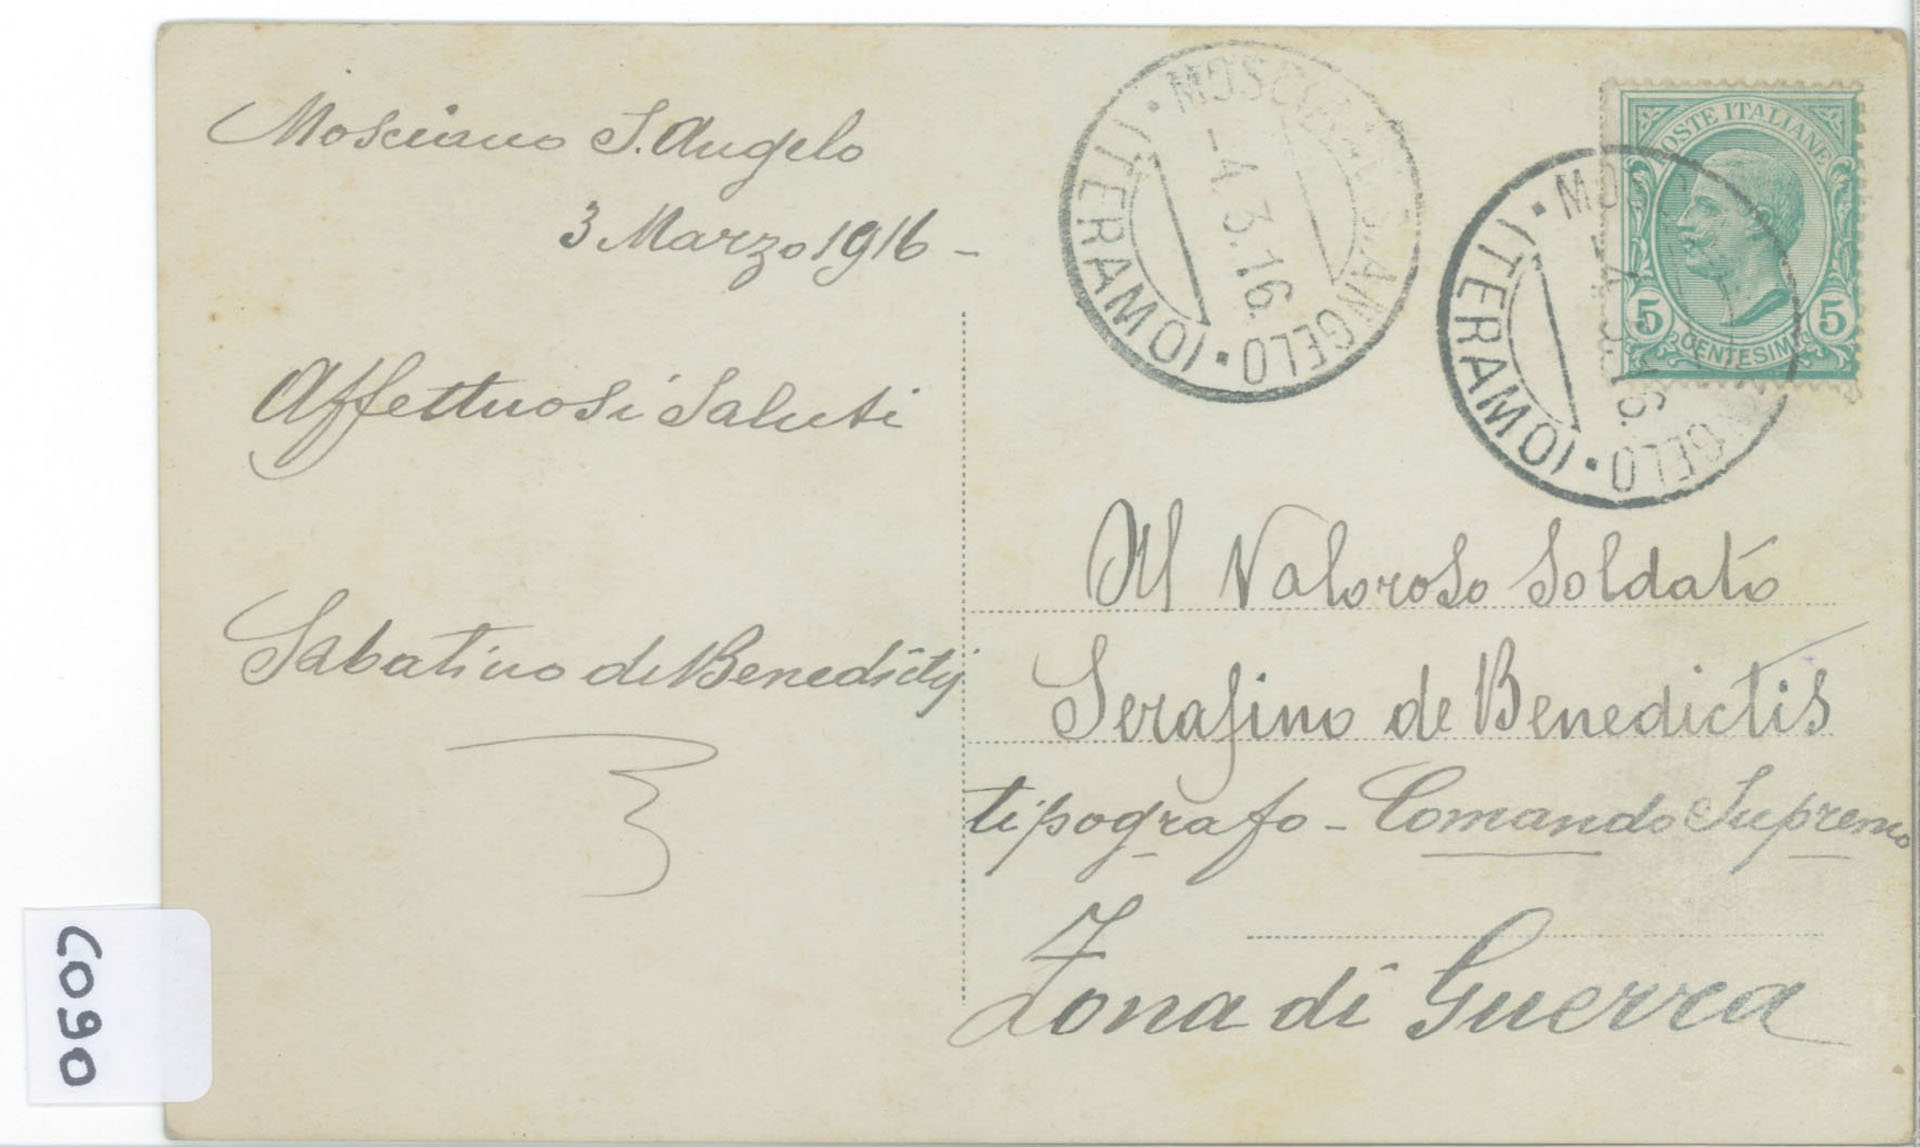 Mosciano S. Angelo
3 Marzo 1916 -
Affettuosi Saluti
Sabatino de Benedictij
MOSCIANO S. ANGELO
(TERAMO)
-4.3.16.
POSTE ITALIANE
5 5
CENTESIMI
MOSCIANO S. ANGELO
(TERAMO)
-4.3.16.
Al Valoroso Soldato
Serafino de Benedictis
tipografo - Comando Supremo
Zona di Guerra
C090